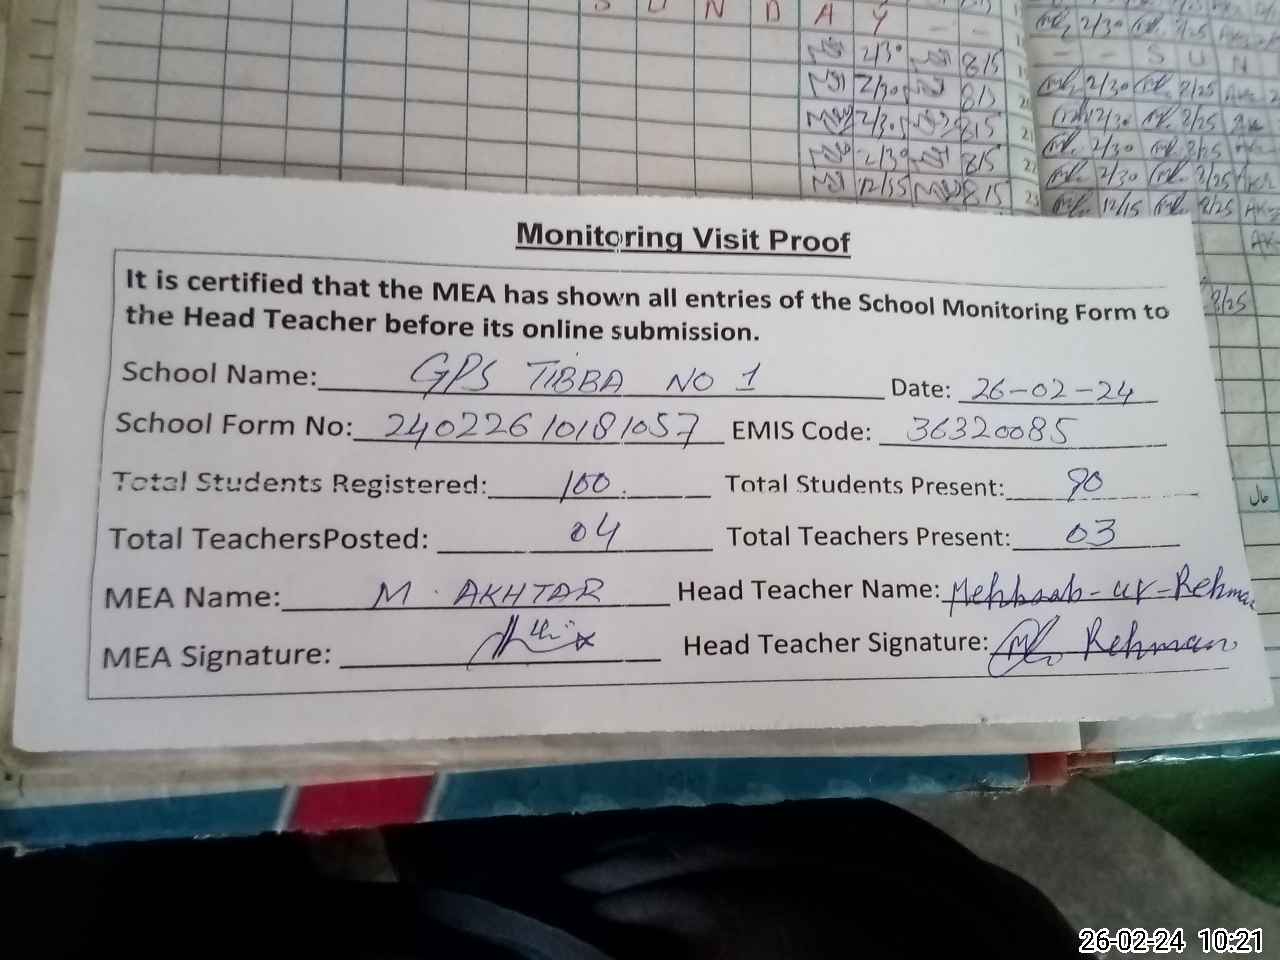 S U N D A Y
2/30 8/5
2/30 8/5
2/30 8/15
2/30 8/15
12/35 8/15
2/30 8/25
S U N
2/30 8/25
12/30 8/25
2/30 8/25
2/30 8/25
12/15 8/25
8/25
Monitoring Visit Proof
It is certified that the MEA has shown all entries of the School Monitoring Form to
the Head Teacher before its online submission.
School Name: GPS TIBBA NO 1 Date: 26-02-24
School Form No: 24022610181057 EMIS Code: 36320085
Total Students Registered: 100 Total Students Present: 90
Total TeachersPosted: 04 Total Teachers Present: 03
MEA Name: M. AKHTAR Head Teacher Name: Mehboob-ur-Rehman
MEA Signature: Head Teacher Signature: Rehman
26-02-24 10:21